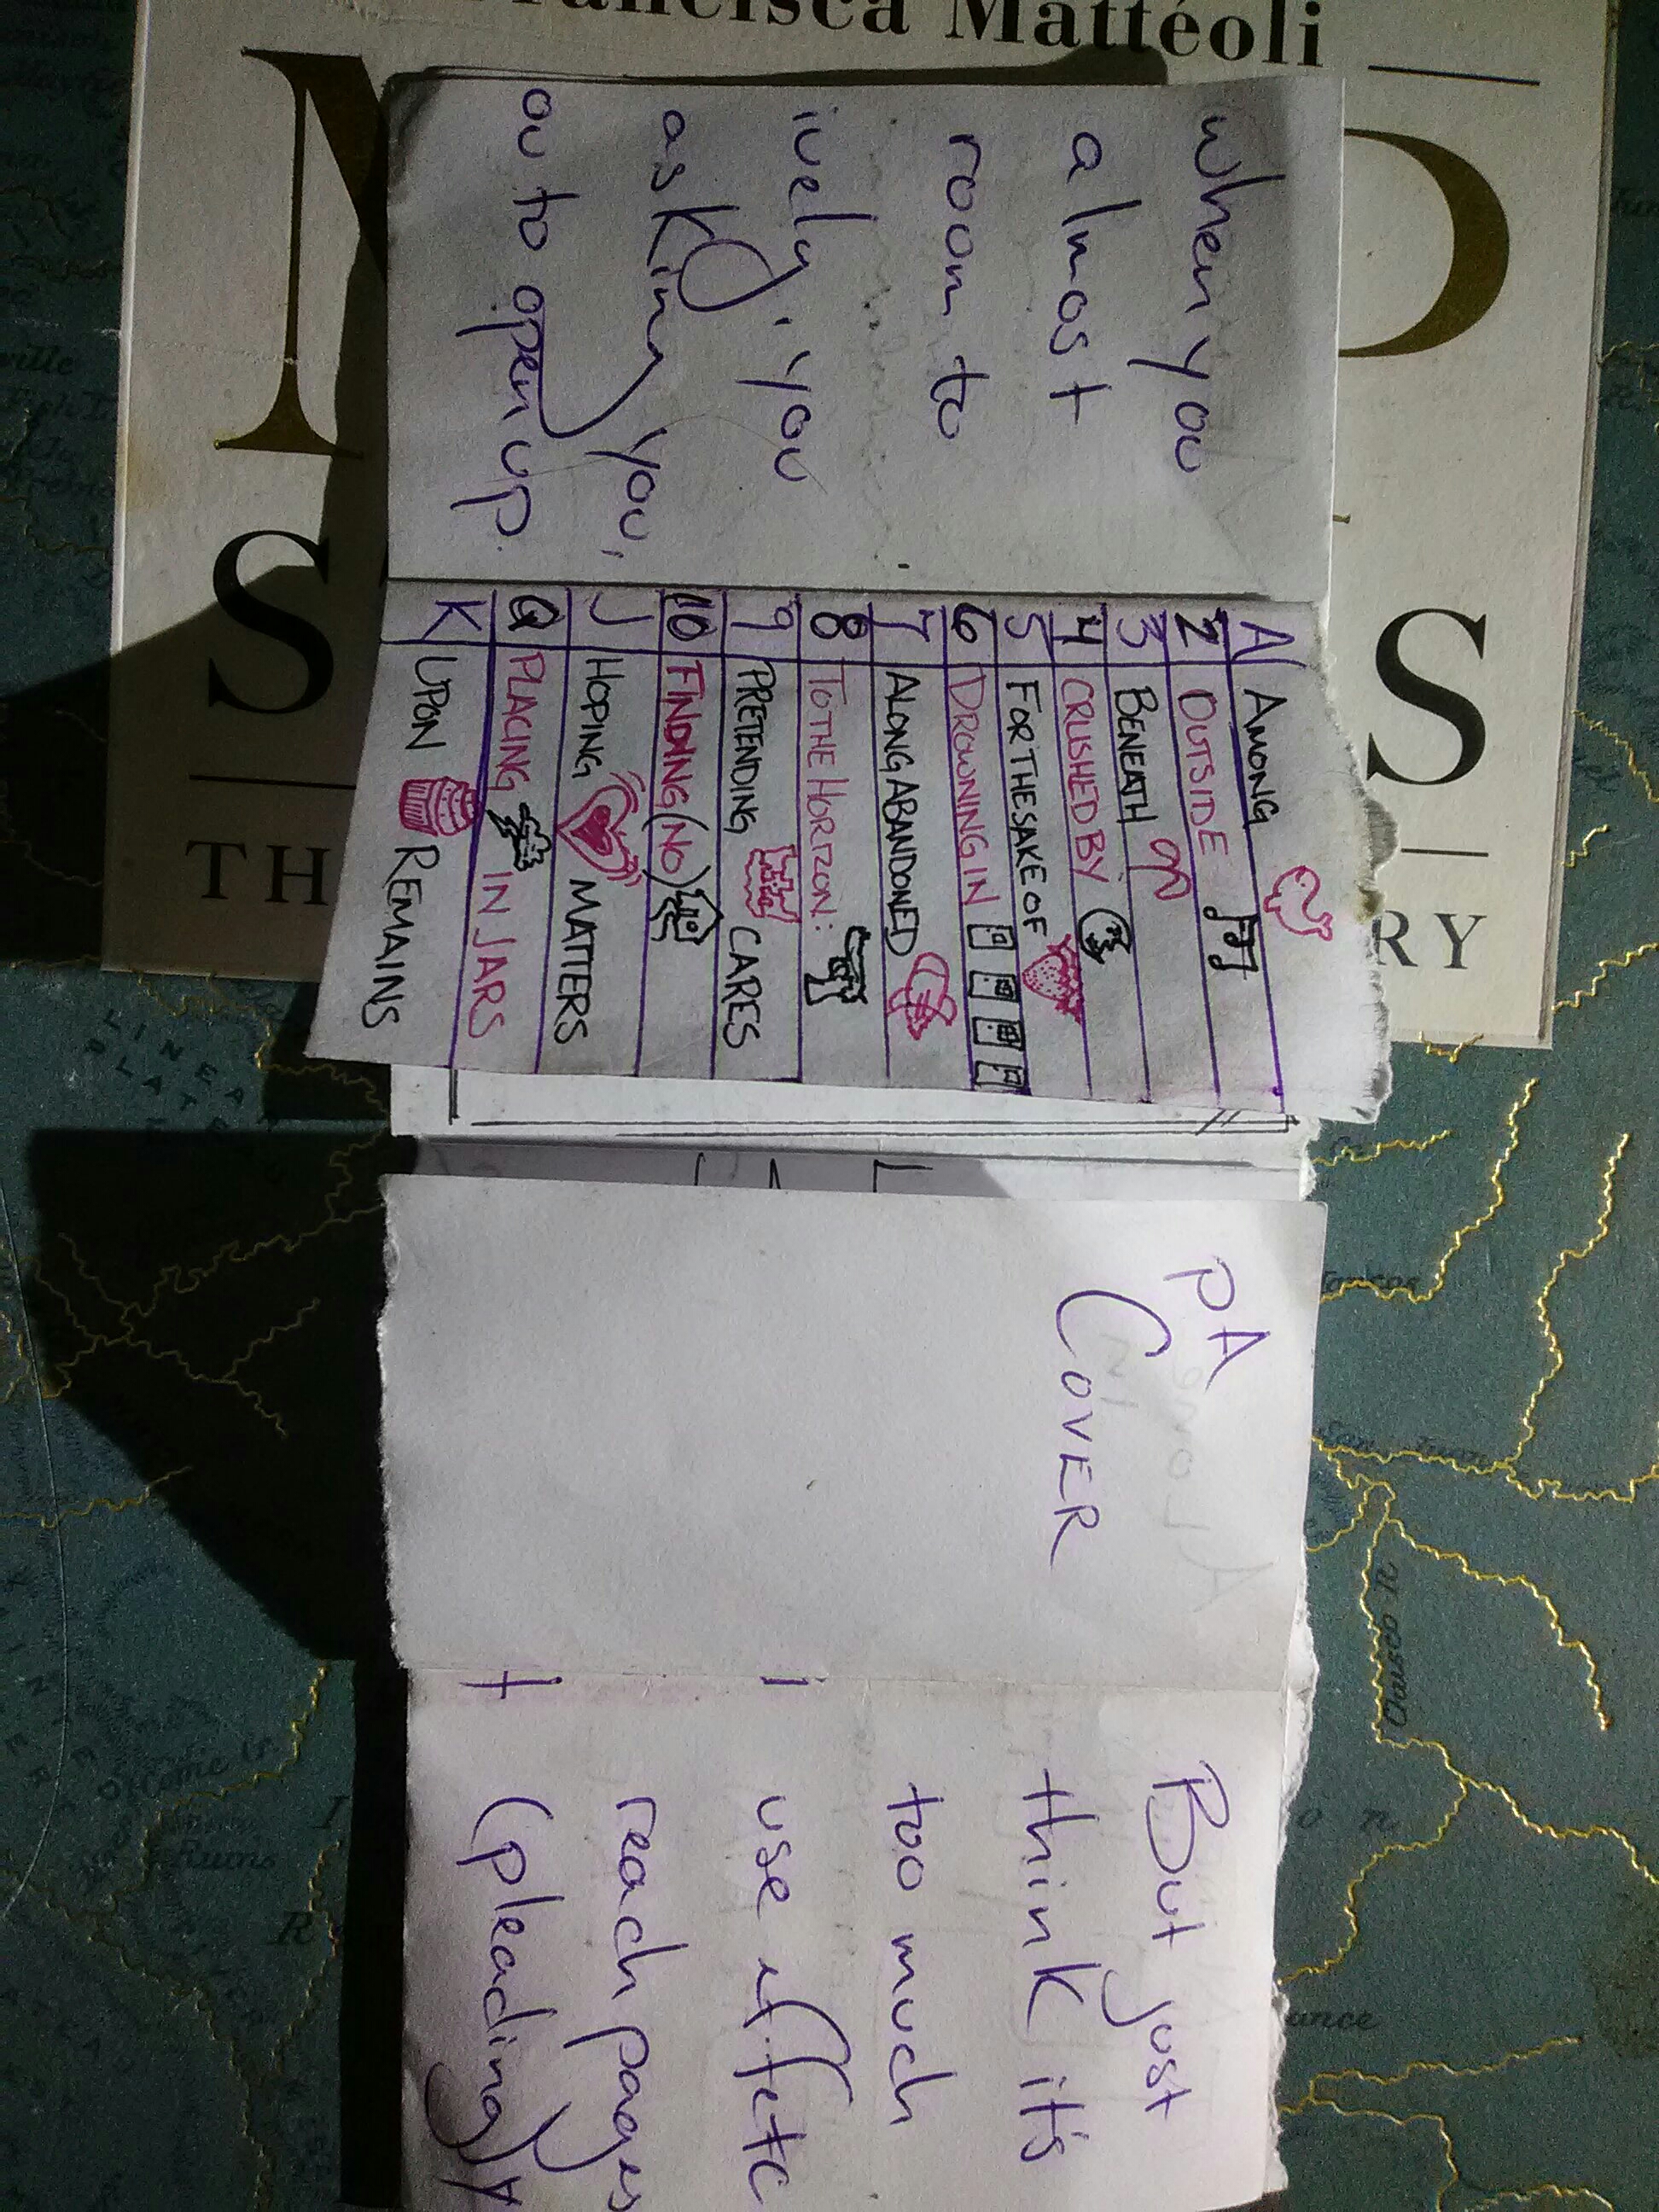 Francisca Mattéoli
M P
S S
TH RY
when you
almost
room to
ively, you
asking you,
ou to open up.
A AMONG
2 OUTSIDE
3 BENEATH
4 CRUSHED BY
5 FOR THE SAKE OF
6 DROWNING IN
7 ALONG ABANDONED
8 TO THE HORIZON:
9 PRETENDING CARES
10 FINDING (NO)
J HOPING MATTERS
Q PLACING IN JARS
K UPON REMAINS
PA
COVER
But just
think it's
too much
use effetc
reach pages
(pleading) y
LINEA
PLATE
San Juan
Oasco R
ance
Ruins
ville